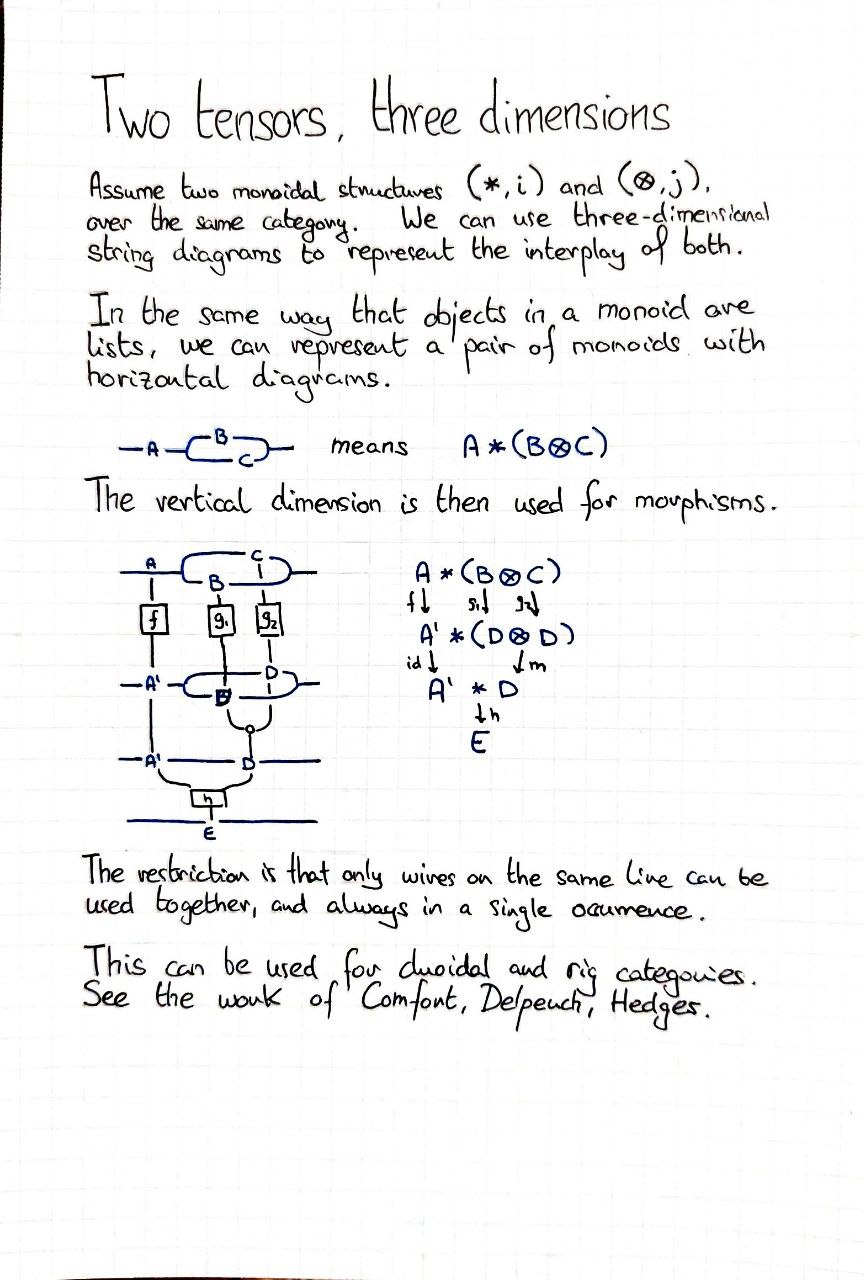 Two tensors, three dimensions
Assume two monoidal structures (*, i) and (⊗, j),
over the same category. We can use three-dimensional
string diagrams to represent the interplay of both.
In the same way that objects in a monoid are
lists, we can represent a pair of monoids with
horizontal diagrams.
A B C means A * (B⊗C)
The vertical dimension is then used for morphisms.
A B C
f g₁ g₂
A' D
A' D
h
E
A * (B ⊗ C)
f↓ g₁↓ g₂↓
A' * (D ⊗ D)
id↓ ↓m
A' * D
↓h
E
The restriction is that only wires on the same line can be
used together, and always in a single ocurrence.
This can be used for duoidal and rig categories.
See the work of Comfort, Delpeuch, Hedges.